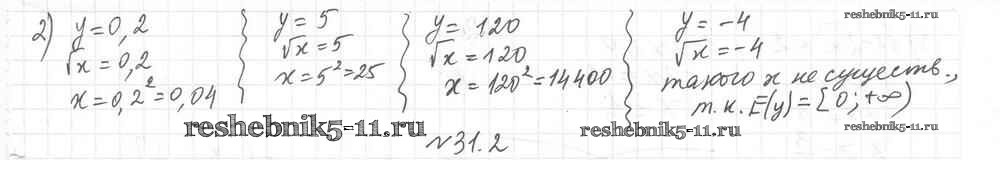 2) y = 0,2
√x = 0,2
x = 0,2² = 0,04
y = 5
√x = 5
x = 5² = 25
y = 120
√x = 120
x = 120² = 14400
y = -4
√x = -4
такого x не существ.,
т.к. E(y) = [0; +∞)
reshebnik5-11.ru
reshebnik5-11.ru
reshebnik5-11.ru
reshebnik5-11.ru
№31.2